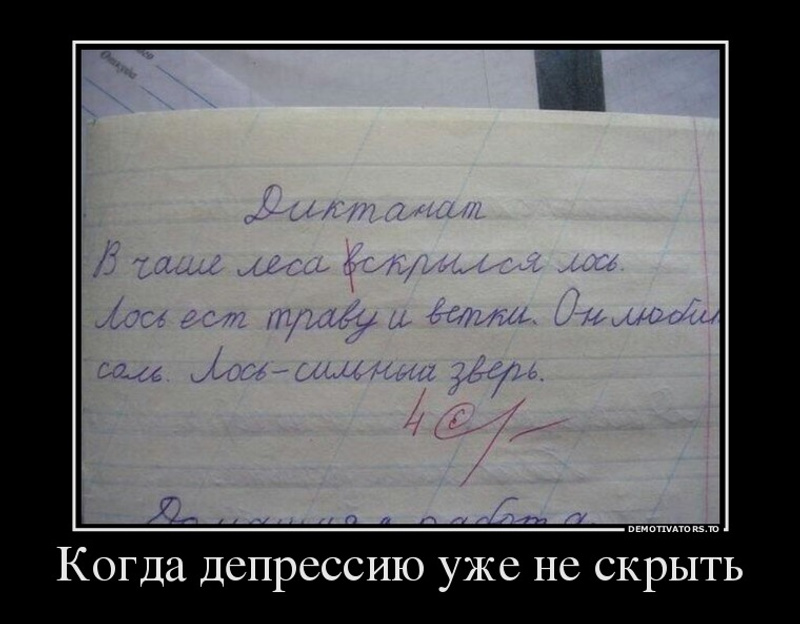 Откуда
Диктанат
В чаше леса вскрылся лось.
Лось ест траву и ветки. Он любит
соль. Лось-сильный зверь.
4
Домашняя работа
DEMOTIVATORS.TO
Когда депрессию уже не скрыть